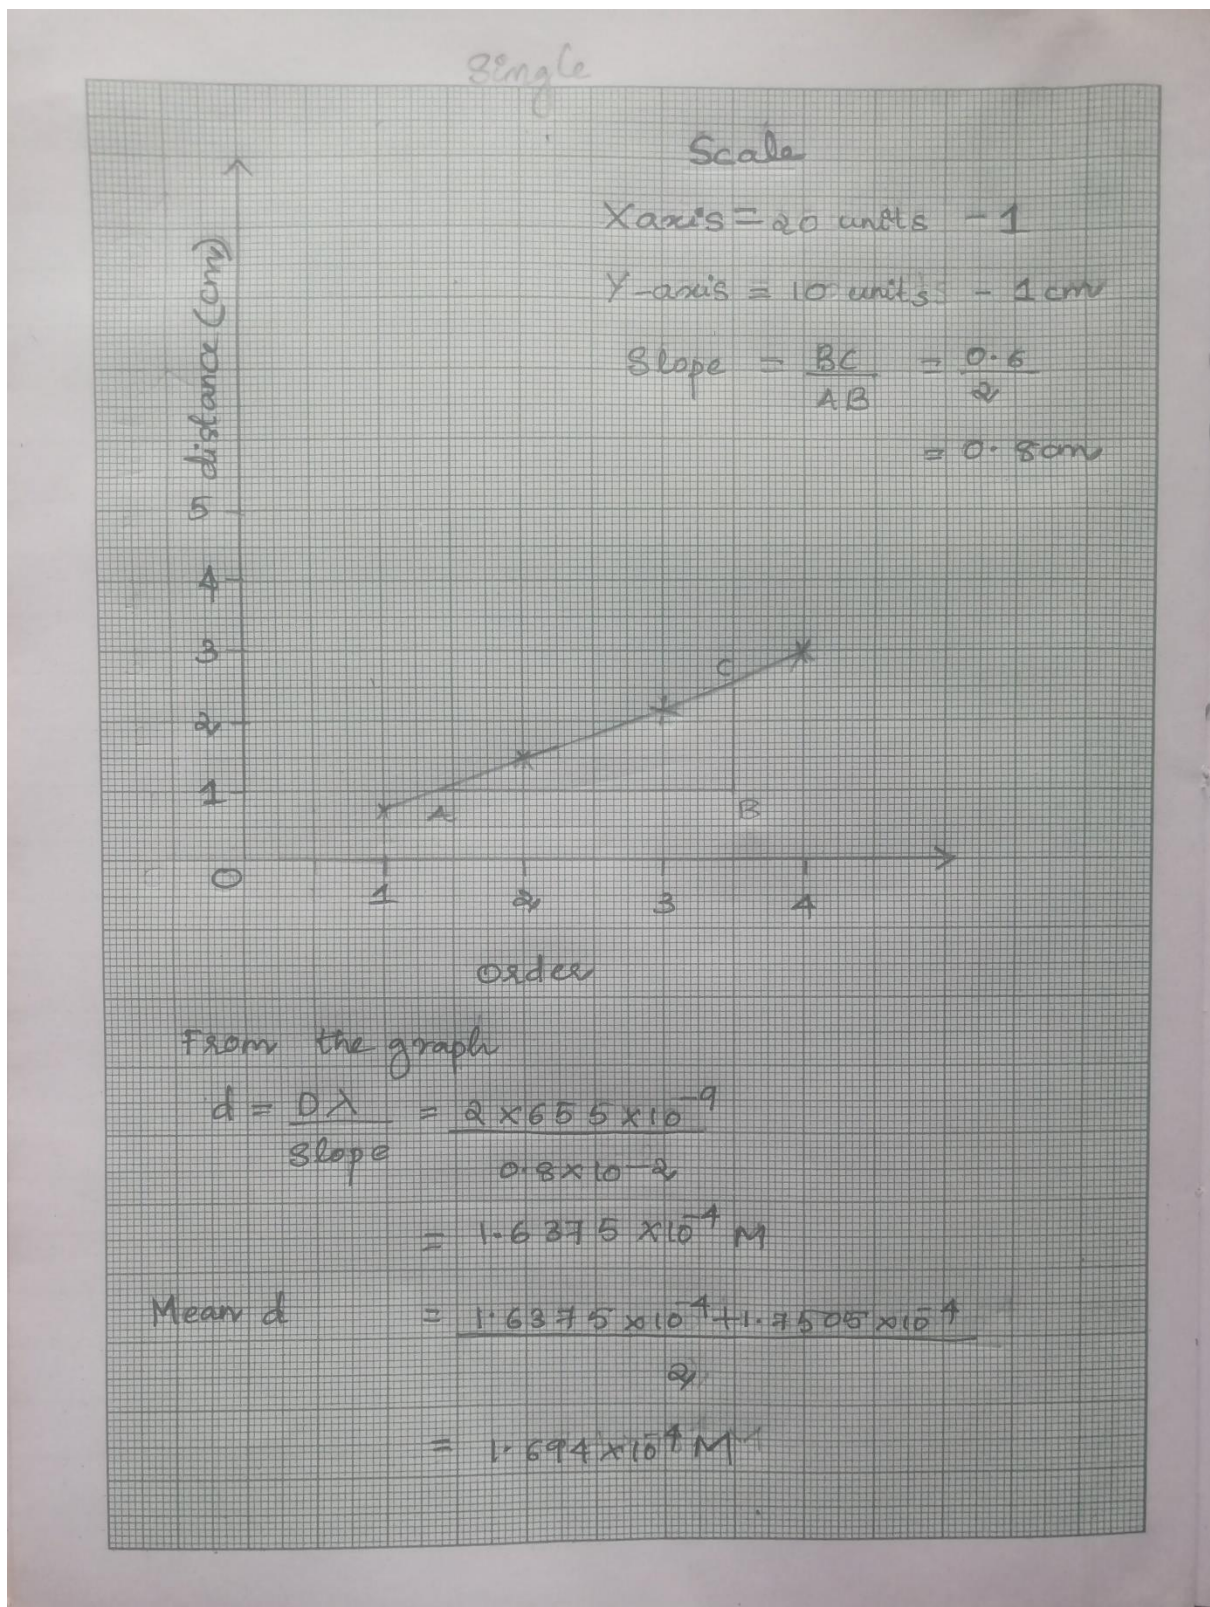 single
Scale
X axis = 20 units - 1
Y-axis = 10 units - 1cm
Slope = BC/AB = 0.6/2
= 0.8cm
distance (cm)
5
4
3
2
1
0
A
B
C
1 2 3 4
order
From the graph
d = Dλ/slope = 2×655×10⁻⁹/0.8×10⁻²
= 1.6375×10⁻⁴ M
Mean d = 1.6375×10⁻⁴+1.7505×10⁻⁴/2
= 1.694×10⁻⁴ M